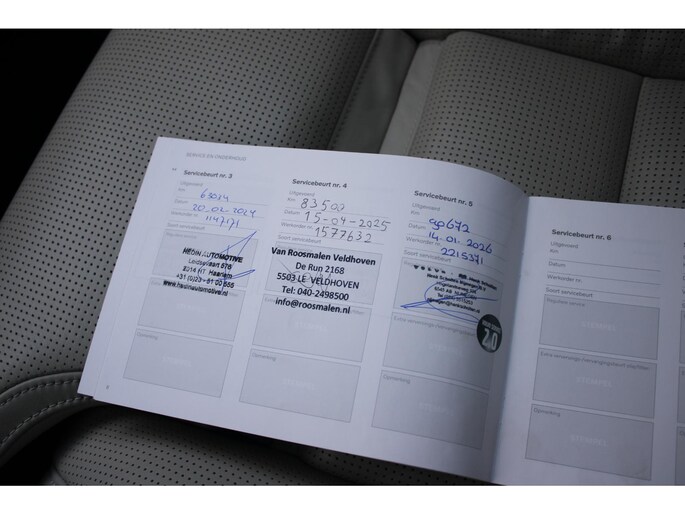 SERVICE EN ONDERHOUD
Servicebeurt nr. 3
Uitgevoerd
Km 63014
Datum 20-02-2024
Werkorder nr. 1147171
Soort servicebeurt
HEDIN AUTOMOTIVE
Haarlem
www.hedinautomotive.nl
Opmerking
Servicebeurt nr. 4
Uitgevoerd
Km 83500
Datum 15-04-2025
Werkorder nr. 1577632
Soort servicebeurt
Van Roosmalen Veldhoven
De Run 2168
5503 LE VELDHOVEN
Tel: 040-2498500
info@roosmalen.nl
Opmerking
Servicebeurt nr. 5
Uitgevoerd
Km 90672
Datum 14-01-2026
Werkorder nr. 2215371
Soort servicebeurt
2.0
Opmerking
Servicebeurt nr. 6
Uitgevoerd
Km
Datum
Werkorder nr.
Soort servicebeurt
Reguliere service
STEMPEL
Opmerking
STEMPEL